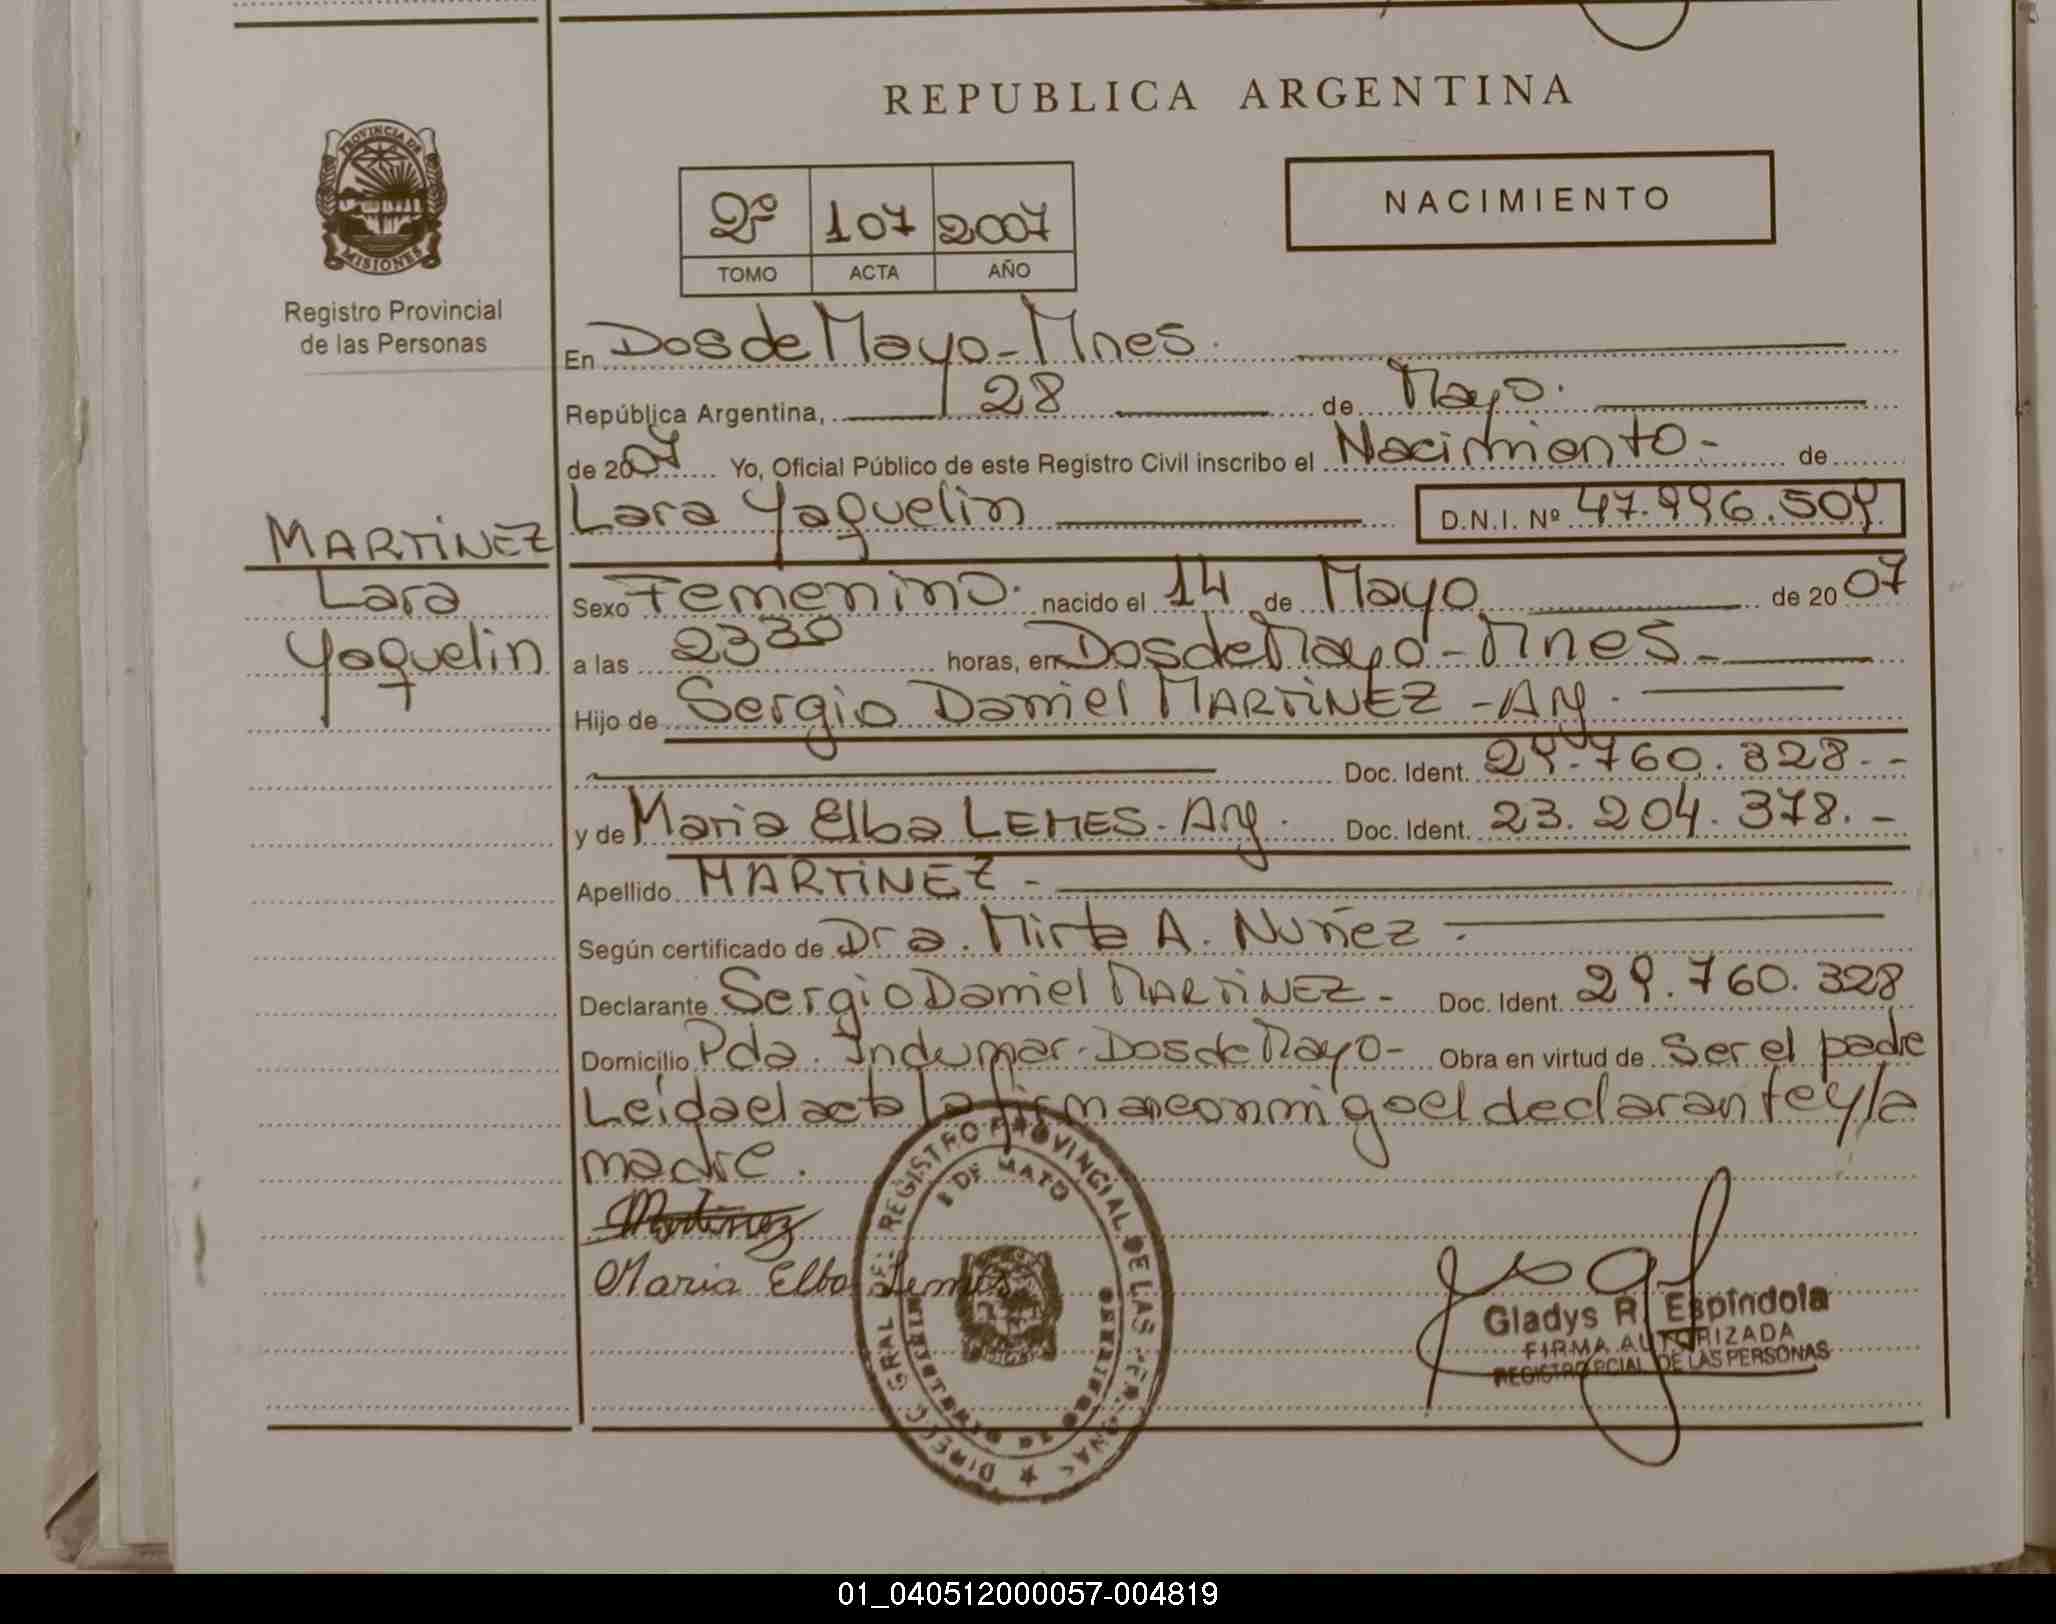 REPUBLICA ARGENTINA
PROVINCIA DE
MISIONES
Registro Provincial
de las Personas
2º 107 2007
TOMO ACTA AÑO
NACIMIENTO
En Dos de Mayo - Mnes.
República Argentina, 28 de Mayo.
de 2007 Yo, Oficial Público de este Registro Civil inscribo el Nacimiento - de
Lara Yaquelin D.N.I. Nº 47.996.509
MARTiNEZ
Lara
Yaquelin
Sexo Femenino. nacido el 14 de Mayo de 2007
a las 2330 horas, en Dos de Mayo - Mnes -
Hijo de Sergio Daniel MARTiNEZ - Arg.
Doc. Ident. 29.760.328.-
y de Maria Elba LEMES - Arg. Doc. Ident. 23.204.378.-
Apellido MARTiNEZ -
Según certificado de Dra. Mirta A. Nuñez -
Declarante Sergio Daniel MARTiNEZ - Doc. Ident. 29.760.328
Domicilio Pda. Indumar - Dos de Mayo - Obra en virtud de Ser el padre
Leída el acta la firman conmigo el declarante y la
madre.
Martinez
Maria Elba Lemes
DIREC. GRAL. DEL REGISTRO PROVINCIAL DE LAS PERSONAS
DE MAYO
Gladys R. Espíndola
FIRMA AUTORIZADA
REGISTRO PCIAL DE LAS PERSONAS
01_040512000057-004819